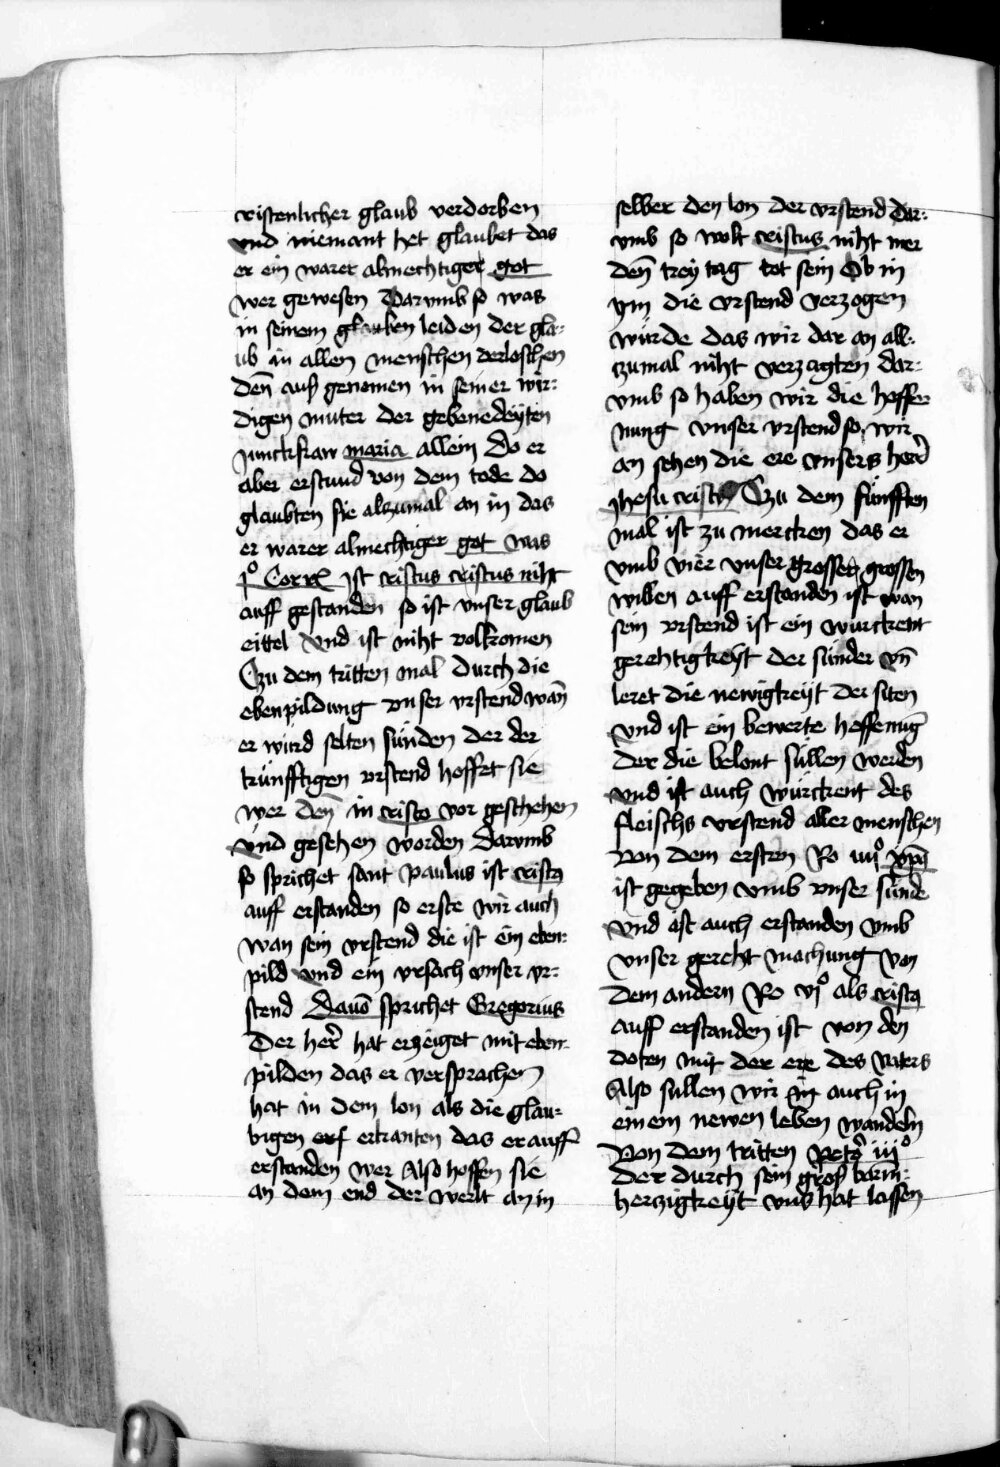 cristenlicher glaub verdorben
vnd niemant het glaubet das
er ein warer almechtiger got
wer gewesen Darvmb so was
in seinem glauben leiden der gla=
ub in allen menschen derloschen
Den auß genomen in seiner wir=
digen muter der gebenedeyten
junckfraw maria allein Do er
aber erstund von dem tode do
glaubten sie alzumal an in das
er warer almechtiger got was
jº Cor xv Ist cristus cristus niht
auff gestanden so ist vnser glaub
eittel Vnd ist niht volkomen
Czu dem tritten mal durch die
ebenpildung vnser vrstend wan̄
er wird selten sünden der der
künfftigen vrstend hoffet sie
wer den̄ in cristo vor geschehen
vnd gesehen worden Darvmb
so sprichet sant paulus ist cristꝰ
auff erstanden so erste wir auch
wan sein vrstend die ist ein eben=
pild vnd ein vrsach vnser vr=
stend Dauō sprichet Gregorius
Der her̄ hat erzeiget mit eben=
pilden das er versprachen
hat in dem lon als die glau=
bigen erkanten das er auff
erstanden wer Also hoffen sie
an dem end der werlt an in
selber den lon der vrstend Dar=
vmb so wolt cristus niht mer
den̄ trey tag tot sein Ob in
ym die vrstend verzogen
würde das wir dar an all=
zumal niht verzagten dar=
vmb so haben wir die hoffe=
nung vnser vrstend so wir
an sehen die ere vnsers heren̄
jhesu cristi Czu dem fünfften
mal ist zu mercken das er
vmb vier vnser grosser grossen
willen auff erstanden ist wan
sein vrstend ist ein würckent
gerehtigkeyt der sünder vn̄
leret die newigkeyt der siten
Vnd ist ein bewerte hoffenūg
der die belont süllen werden
vnd ist auch würckent des
fleischs vrstend aller menschen
Von dem ersten Ro iiijº xp̄s
ist gegeben vmb vnser sünde
Vnd ist auch erstanden vmb
vnser gereht machung Von
dem andern Ro vjº als cristꝰ
auff erstanden ist von den
doten mit der ere des vaters
Also sullen wir auch in
einem newen leben wandeln
Von dem tritten petrꝰ iijº
der durch sein groß barm=
herzigkeyt vns hat lassen